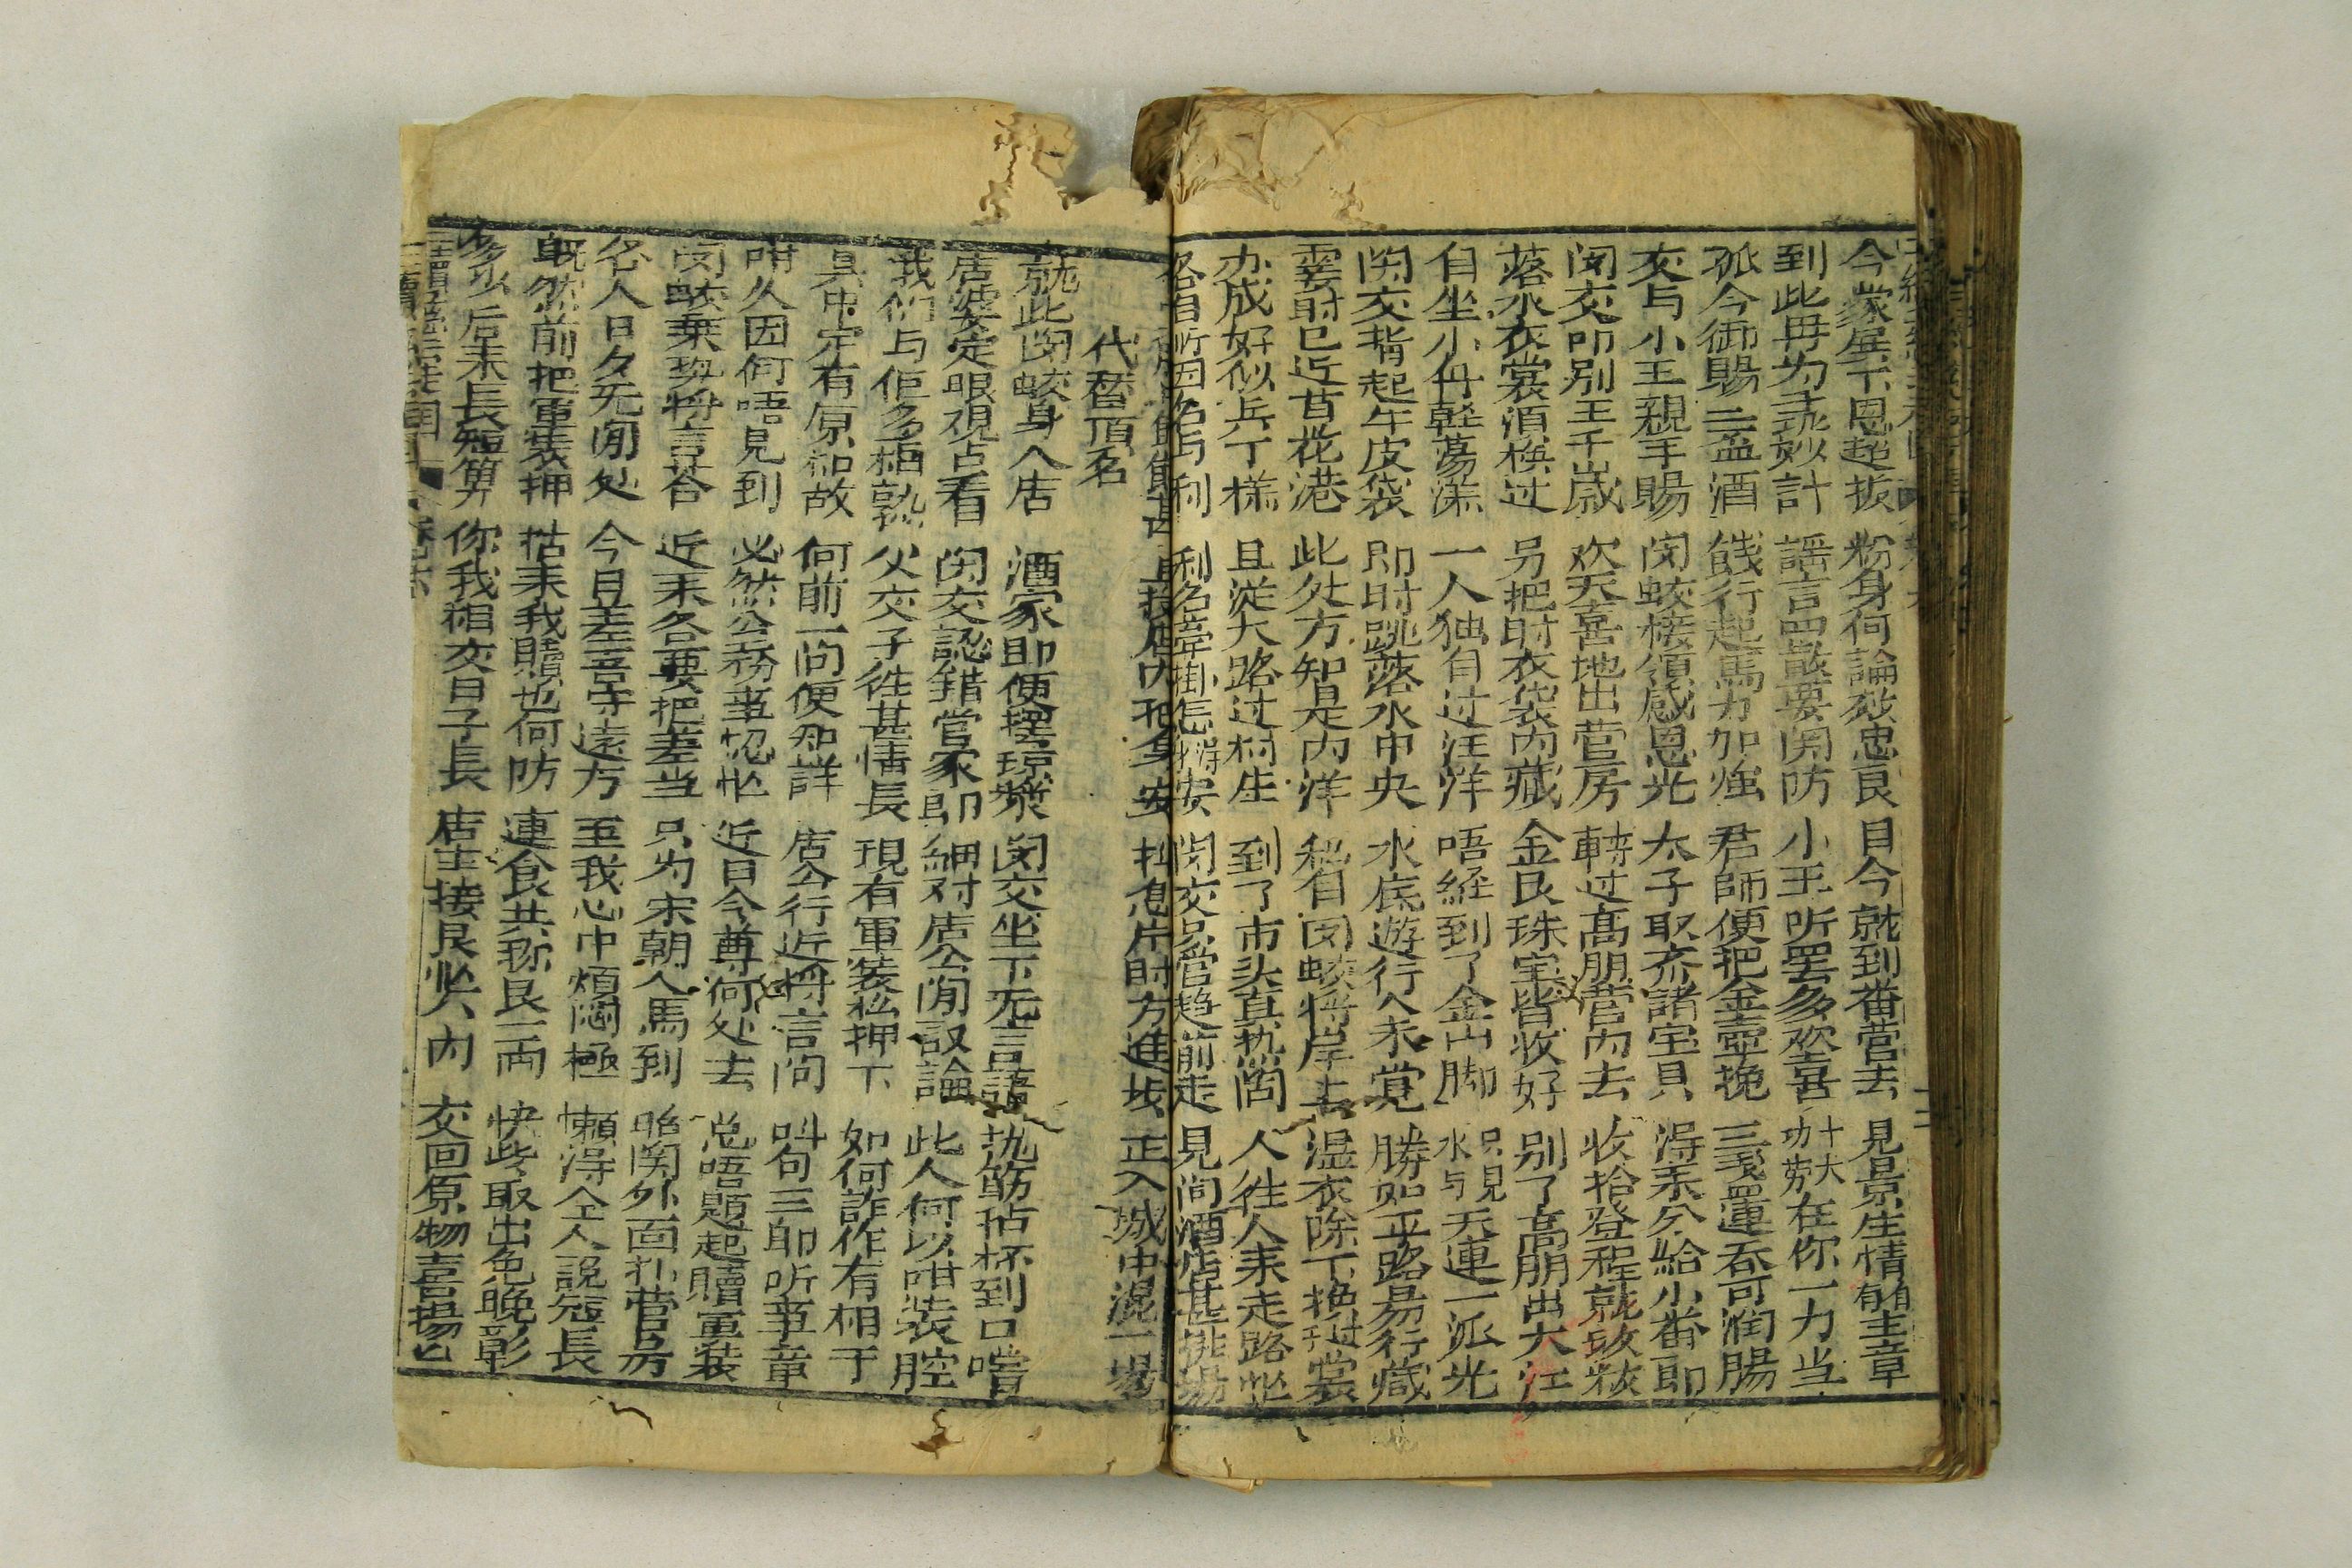 今蒙展下恩超拔 粉身何論効忠良 目今就到番营去 見景生情自有主章
到此毋为乖妙計 謡言四散要関防 小王听罢多欢喜 十大功劳在你一力当
孤今御賜三盃酒 餞行起馬力加強 君師便把金壺挽 三戔羅連吞可潤腸
交与小王親手賜 闵蛟接領感恩光 太子取齐諸宝貝 淂来分給小番郎
闵交叩别王千歲 欢天喜地出营房 轉过高朋营内去 收拾登程就改粧
落水衣裳湏換过 另把时衣袋内藏 金艮珠宝皆收好 别了高朋出大江
自坐小舟輕蕩漾 一人独自过汪洋 唔経到了金山脚 只見水与天連一派光
闵交揹起牛皮袋 即时跳落水中央 水底遊行人未覚 勝如平路易行藏
霎时已近百花港 此处方知是内洋 秘自闵蛟将岸去 湿衣除下換过裳
办成好似兵丁様 且従大路过村庄 到了市头真热闹 人往人来走路忙
各官所因名与利 利名牽掛怎淂安 闵交只管趋前走 見间酒店甚排場
直接店内把身安 抽息片时方進步 正入城中混一場
代替頂名
就此闵蛟身入店 酒家即便擺琼漿 闵交坐下无言語 执筯拈杯到口嚐
店婆定眼視占看 闵交認錯當家郎 細对店公閒議論 此人何以咁装腔
我们与佢多栢熟 父交子往甚情長 現有軍装私押下 如何詐作冇相干
其中定有原和故 何前一问便知詳 店公行近将言问 叫句三郎听亊章
咁久因何唔見到 必然公務亊怱忙 近日今尊何处去 总唔題起贖軍装
闵蛟乗埶将言答 近来各要把差当 只为宋朝人馬到 昭関外面扎营房
名人日夕无閒处 今日差吾守遠方 至我心中煩悶極 懶淂仝人説短長
既然前把軍装押 拈来我贖也何防 連食共称艮一両 快些取出免晚彰
多少后来長短算 你我相交日子長 店主接艮收入内 交回原物喜揚已